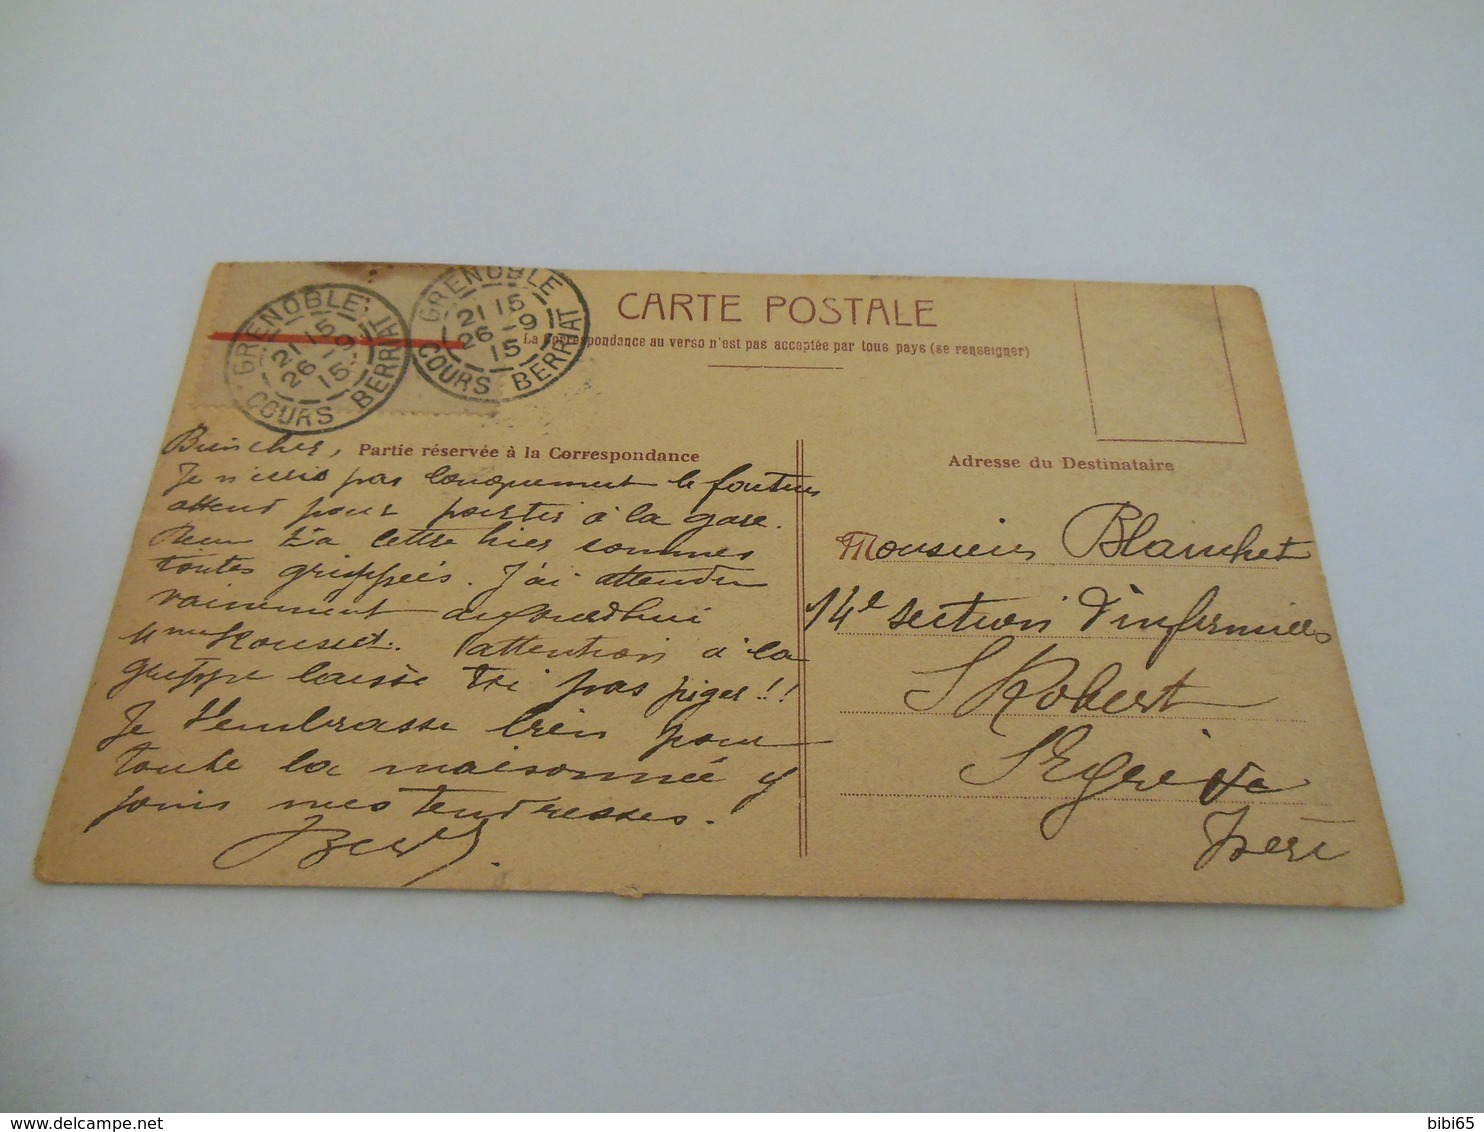 GRENOBLE
21 15
26 -9
15
COURS BERRIAT
GRENOBLE
21 15
26 -9
15
COURS BERRIAT
CARTE POSTALE
La Correspondance au verso n'est pas acceptée par tous pays (se renseigner)
Partie réservée à la Correspondance
Bien chers,
Je n'écris pas longuement le facteur
attend pour partir à la gare.
Reçu ta lettre hier sommes
toutes grippées. J'ai attendu
vainement aujourd'hui
Mme Rousset. Attention à la
grippe laisse toi pas piger!!
Je t'embrasse bien pour
toute la maisonnée y
joins mes tendresses.
Adresse du Destinataire
Monsieur Blanchet
14e section d'infirmiers
St Robert
St Egrève
Isère
bibi65